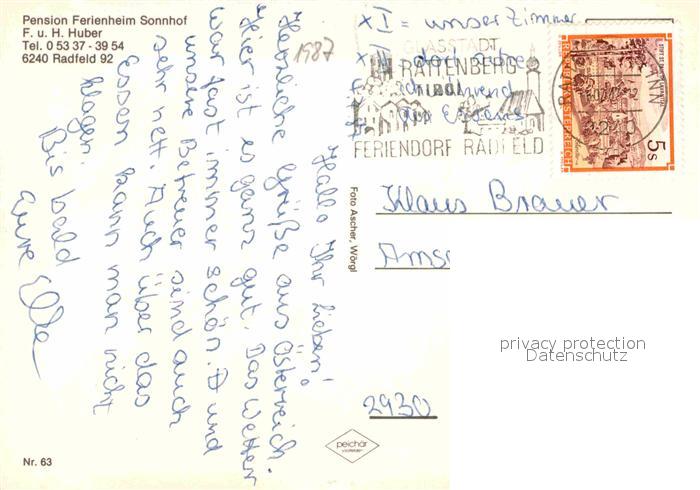 Pension Ferienheim Sonnhof
F. u. H. Huber
Tel. 0 53 37 - 39 54
6240 Radfeld 92
1987
Hallo Ihr Lieben!
Herzliche Grüße aus Österreich.
Hier ist es ganz gut. Das Wetter
war fast immer schön. A und
unsere Betreuer sind auch
sehr nett. Auch über das
Essen kann man nicht
klagen.
Bis bald
Eure Elke
Nr. 63
Foto Ascher, Wörgl
peichär
x I = unser Zimmer
x II
während
des Essens
GLASSTADT
RATTENBERG
TIROL
FERIENDORF RADFELD
REPUBLIK ÖSTERREICH
5 s
Klaus Brauer
Ams
2930
privacy protection
Datenschutz